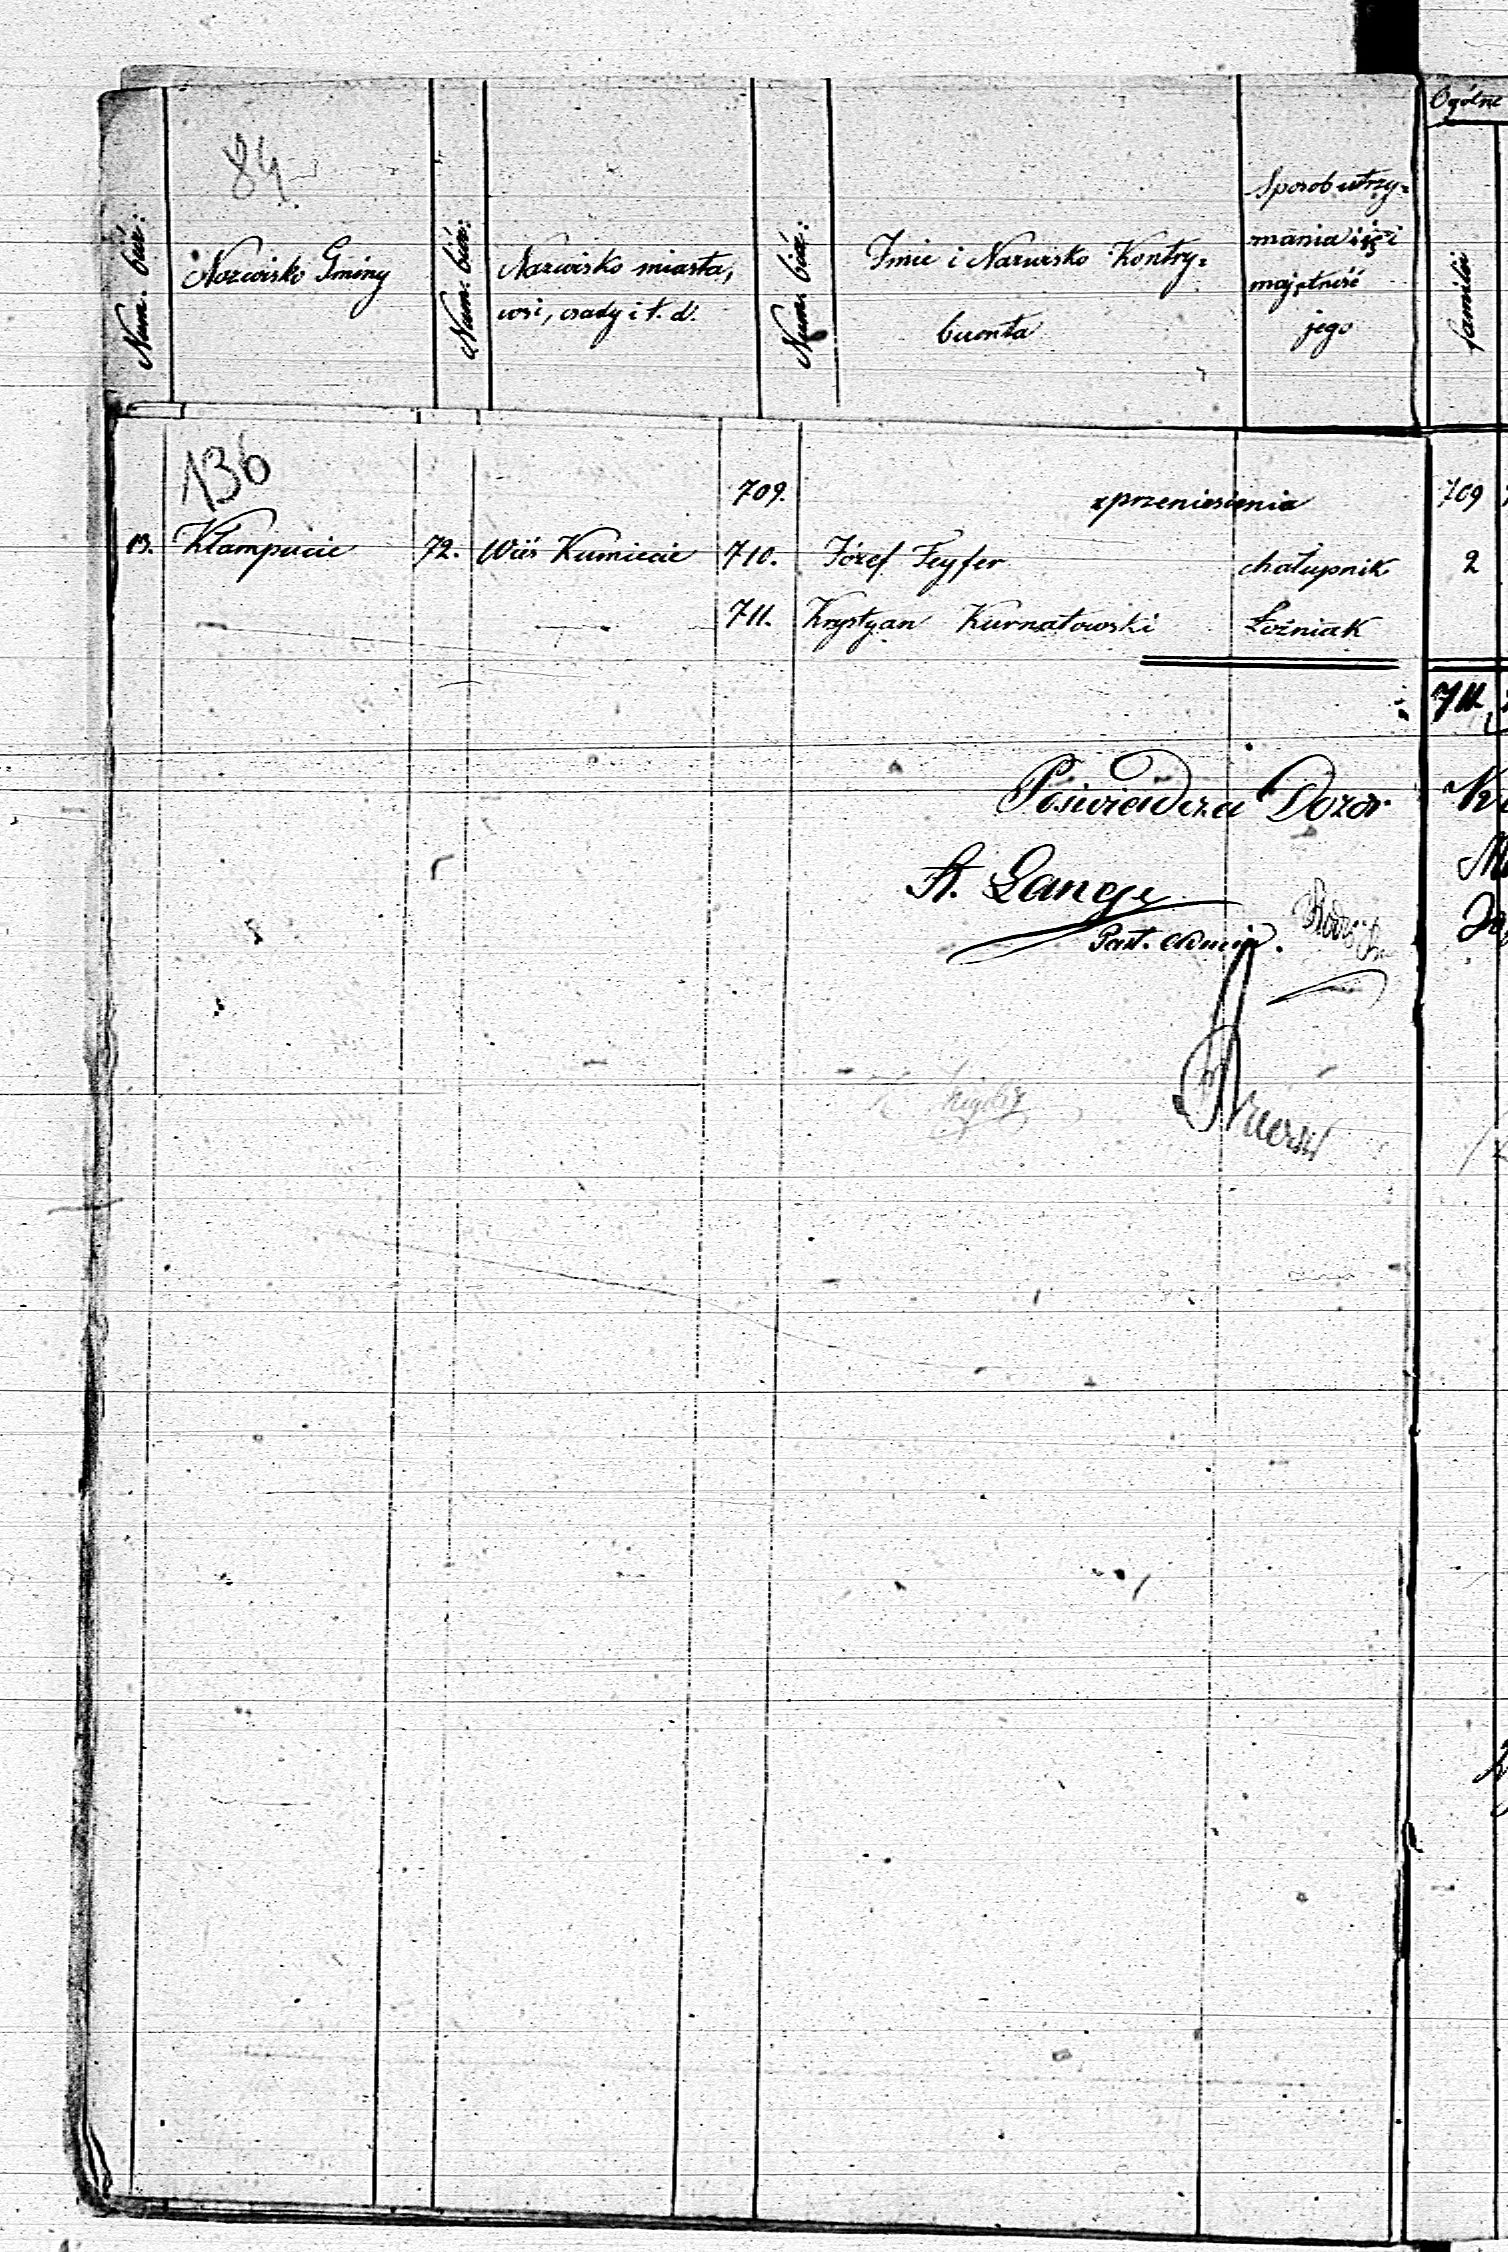 84
Ogólne
Num. bież:
Nazwisko Gminy
Num. bież:
Nazwisko miasta,
wsi, osady i t. d.
Num. bież:
Imie i Nazwisko Kontry=
buenta
Sposób utrzy=
mania się i
majętność
jego
familii
136
709. z przeniesienia 709
13. Kłampucie 72. Wieś Kumiecie 710. Józef Feyfer chałupnik 2
711. Krystyan Kurnatowski Łoźniak
711
Poświadcza Dozór
A. Lange
Past. Admin.